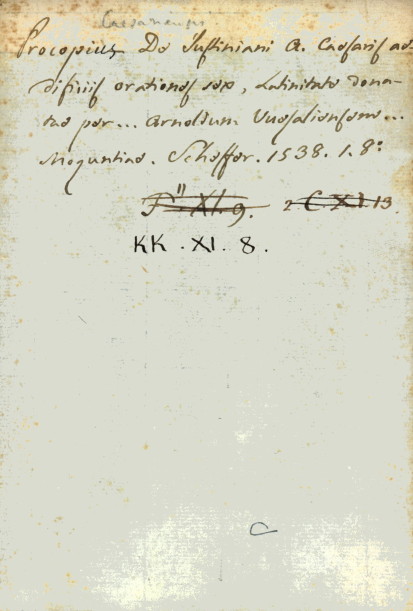 Caesariensi
Procopius De Justiniani A. Caesaris ae-
dificiis orationes sex, Latinitate dona-
tae per... Arnoldum Vuesaliensem...
Moguntiae. Schoffer. 1538. 1. 8º
F" XI. 9. 2 C. XI. 13
KK. XI. 8.